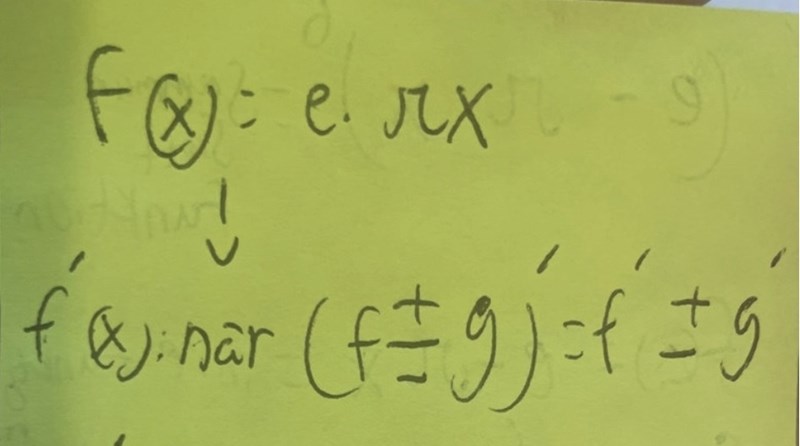 F(x) = e · πx
↓
f'(x): när (f ± g)' = f' ± g'